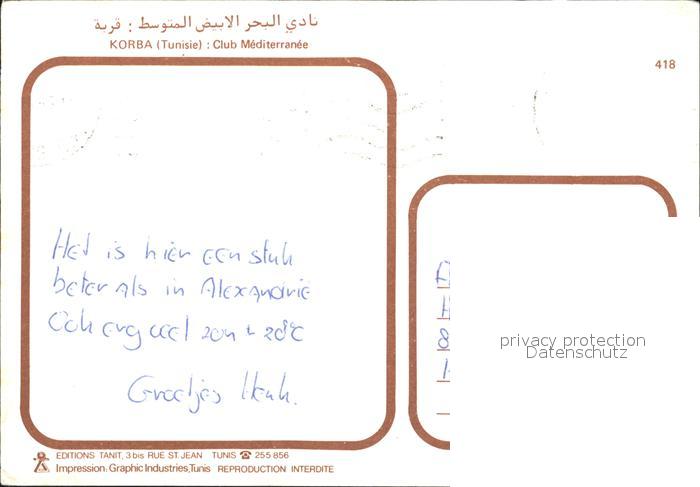 نادي البحر الابيض المتوسط : قربة
KORBA (Tunisie) : Club Méditerranée
418
Het is hier een stuk
beter als in Alexandrie
Ook erg veel zon ± 28°C
Groetjes Henk.
8
privacy protection
Datenschutz
EDITIONS TANIT, 3 bis RUE ST. JEAN TUNIS ☎ 255 856
Impression: Graphic Industries, Tunis REPRODUCTION INTERDITE